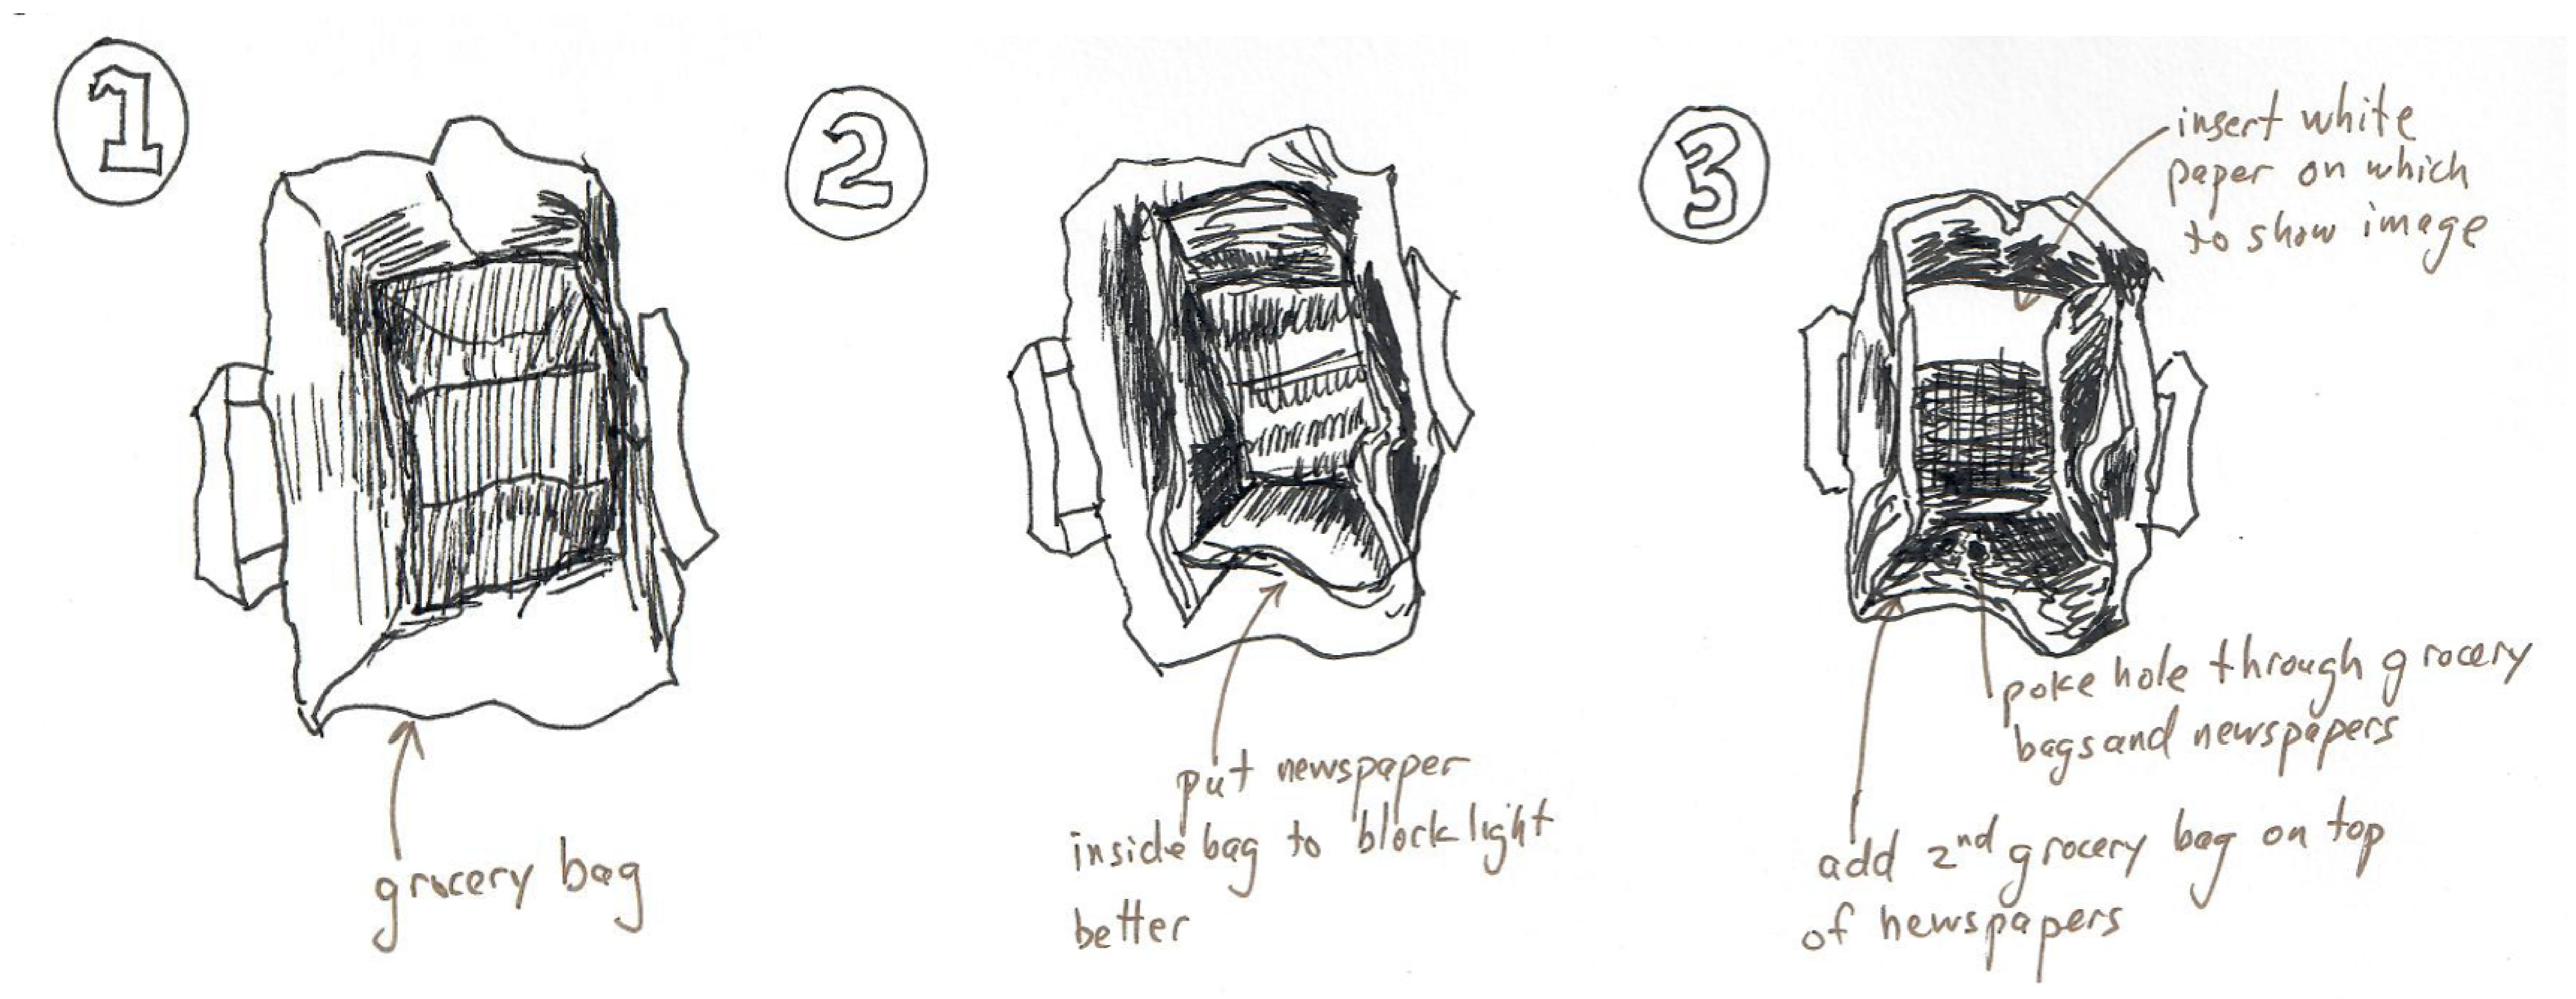 1
grocery bag
2
put newspaper
inside bag to block light
better
3
insert white
paper on which
to show image
poke hole through grocery
bags and newspapers
add 2nd grocery bag on top
of newspapers